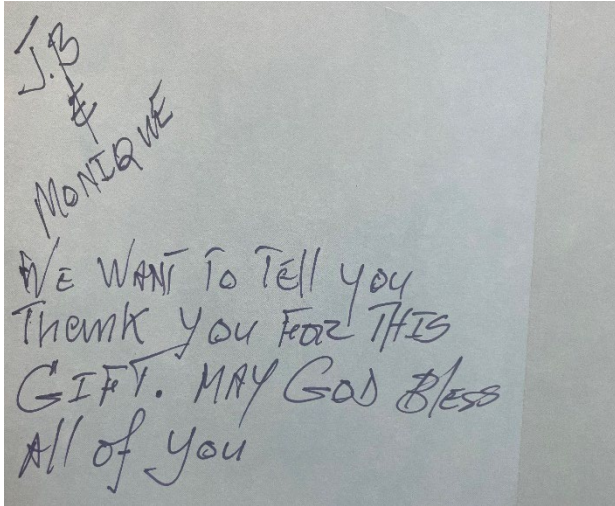 J.B
&
MONIQUE
WE WANT TO TEll you
Thank you FOR THIS
GIFT. MAY GOD Bless
All of you